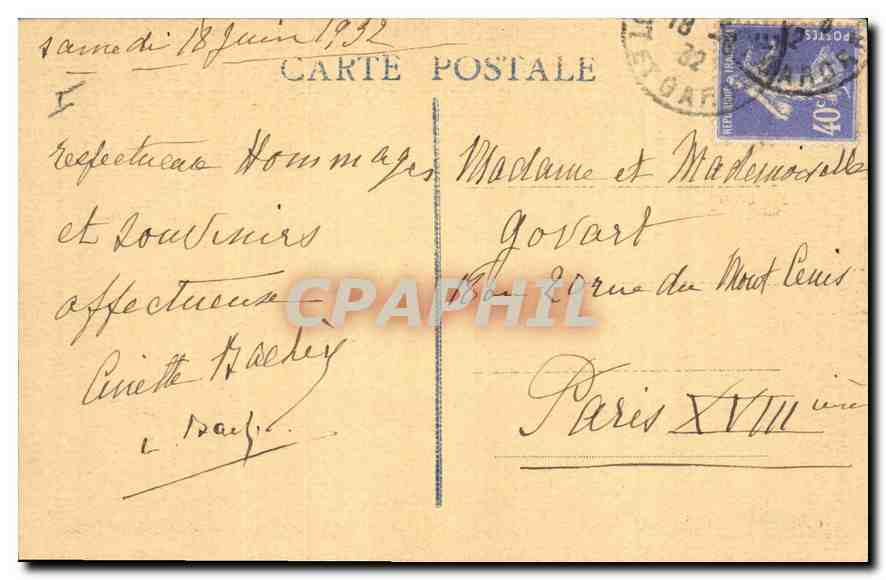 samedi 18 Juin 1932
CARTE POSTALE
respectueux Hommages
et souvenirs
affectueux
Ginette
Madame et Mademoiselle
Govart
20 rue du Mont Cenis
Paris XVIII ième
CPAPHIL
18
32
ET GAR
MAROS
REPUBLIQUE FRANÇAISE
POSTES
40c